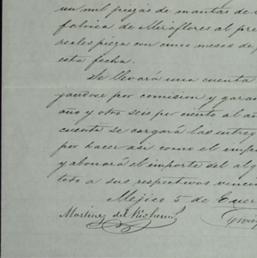 un mil piezas de mantas de
fabrica de Miraflores al pre
reales pieza con cinco meses de p
esta fecha.
Se llevará una cuenta
gandose por comision y garan
año y otro seis por ciento al a
cuenta se cargará las entreg
por hacer asi como el impo
y abonará el importe del alg
todo a sus respectivos venci
Méjico 5 de Ener
Martinez del Rio herms